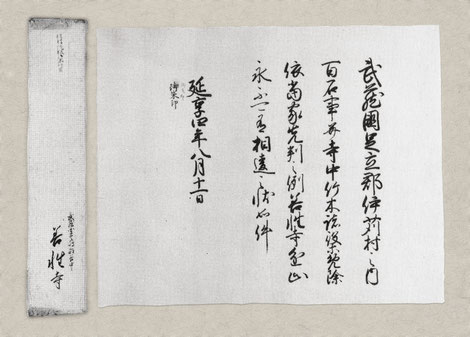 武蔵國足立郡伊苅村之内
百石事并寺中竹木諸役免除
依當家先判之例善性寺進止
永不可有相違之状如件
延享四年八月十一日
御朱印
善性寺